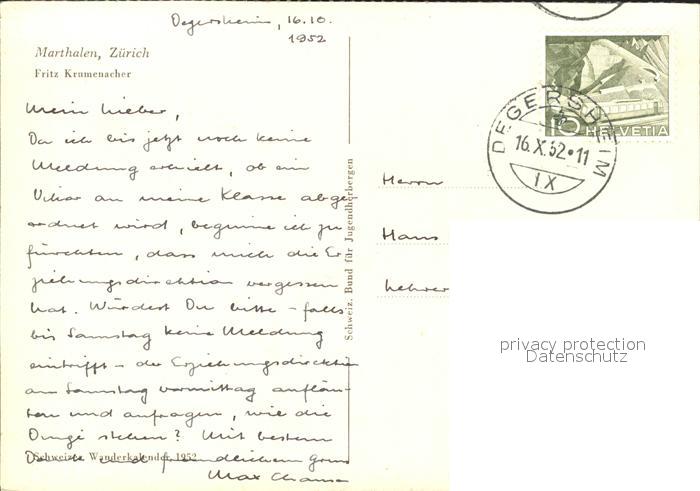 Degersheim, 16.10.
1952
Marthalen, Zürich
Fritz Krumenacher
Mein Lieber,
Da ich bis jetzt noch keine
Meldung erhielt, ob ein
Vikar an meine Klasse abge-
ordnet wird, beginne ich zu
fürchten, dass mich die Er-
ziehungsdirektion vergessen
hat. Würdest Du bitte – falls
bis Samstag keine Meldung
eintrifft – der Erziehungsdirektion
am Samstag vormittag aufläu-
ten und anfragen, wie die
Dinge stehen? Mit bestem
Dank und freundlichem Gruss
Max
Schweizer Wanderkalender 1952
Schweiz. Bund für Jugendherbergen
10 HELVETIA
DEGERSHEIM
16.X.52•11
IX
Herrn
Hans
Lehrer
privacy protection
Datenschutz